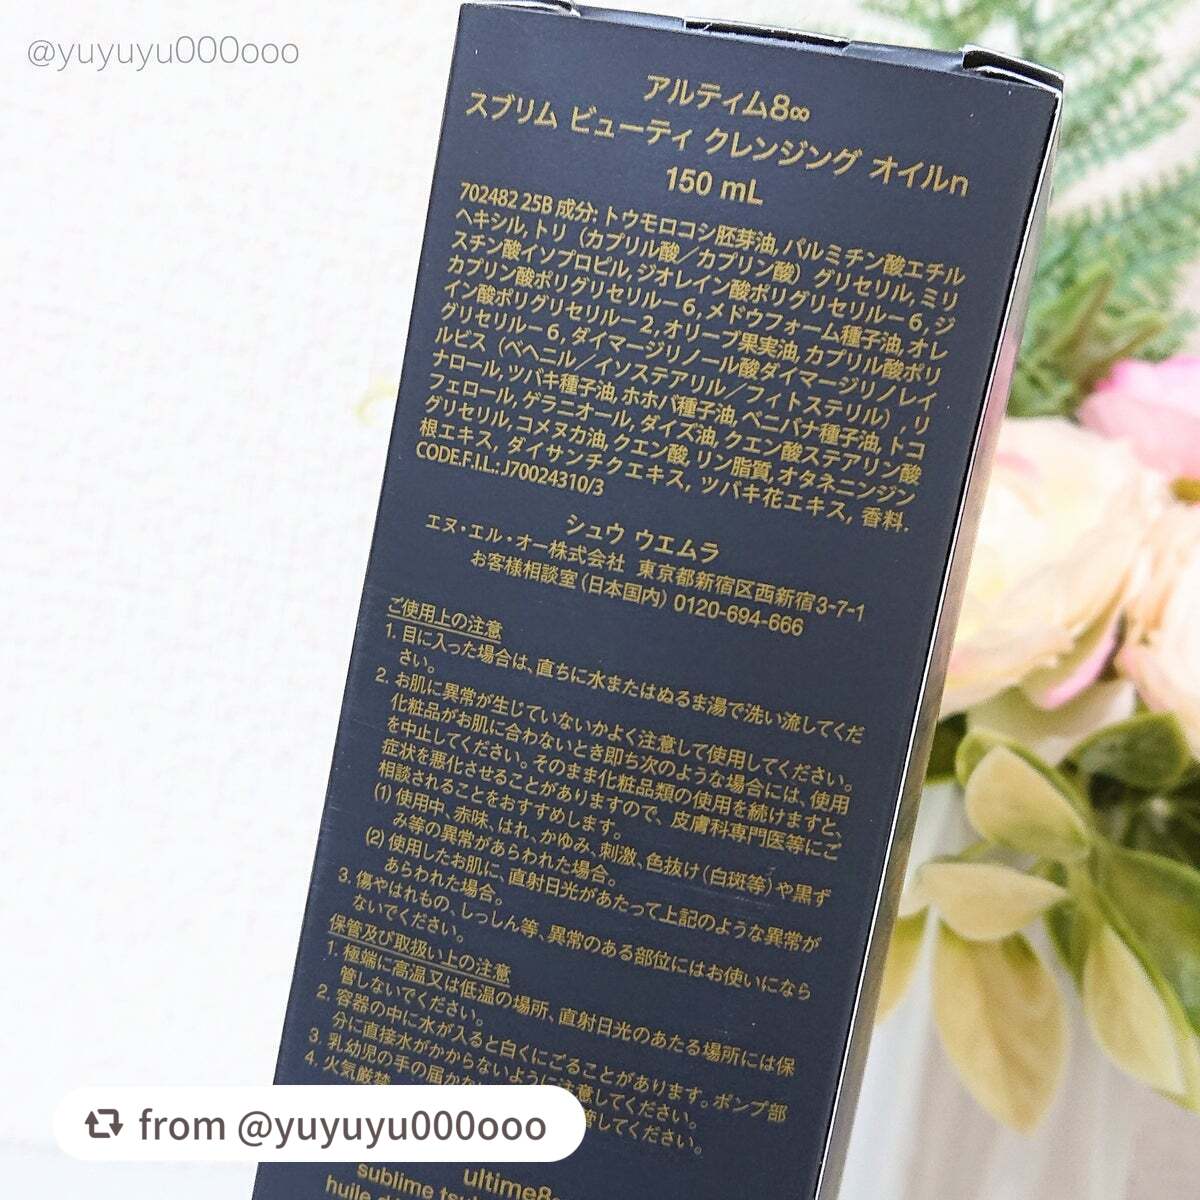 @yuyuyu000ooo
アルティム8∞
スブリム ビューティ クレンジング オイルn
150 mL
702482 25B 成分: トウモロコシ胚芽油, パルミチン酸エチル
ヘキシル, トリ（カプリル酸／カプリン酸）グリセリル, ミリ
スチン酸イソプロピル, ジオレイン酸ポリグリセリル－6, ジ
カプリン酸ポリグリセリル－6, メドウフォーム種子油, オレ
イン酸ポリグリセリル－2, オリーブ果実油, カプリル酸ポリ
グリセリル－6, ダイマージリノール酸ダイマージリノレイ
ルビス（ベヘニル／イソステアリル／フィトステリル）, リ
ナロール, ツバキ種子油, ホホバ種子油, ベニバナ種子油, トコ
フェロール, ゲラニオール, ダイズ油, クエン酸ステアリン酸
グリセリル, コメヌカ油, クエン酸, リン脂質, オタネニンジン
根エキス, ダイサンチクエキス, ツバキ花エキス, 香料.
CODE.F.I.L.: J70024310/3
シュウ ウエムラ
エヌ・エル・オー株式会社 東京都新宿区西新宿3-7-1
お客様相談室（日本国内）0120-694-666
ご使用上の注意
1. 目に入った場合は、直ちに水またはぬるま湯で洗い流してくだ
さい。
2. お肌に異常が生じていないかよく注意して使用してください。
化粧品がお肌に合わないとき即ち次のような場合には、使用
を中止してください。そのまま化粧品類の使用を続けますと、
症状を悪化させることがありますので、皮膚科専門医等にご
相談されることをおすすめします。
(1) 使用中、赤味、はれ、かゆみ、刺激、色抜け（白斑等）や黒ず
み等の異常があらわれた場合。
(2) 使用したお肌に、直射日光があたって上記のような異常が
あらわれた場合。
3. 傷やはれもの、しっしん等、異常のある部位にはお使いになら
ないでください。
保管及び取扱い上の注意
1. 極端に高温又は低温の場所、直射日光のあたる場所には保
管しないでください。
2. 容器の中に水が入ると白くにごることがあります。ポンプ部
分に直接水がかからないように注意してください。
3. 乳幼児の手の届かな 管してください。
4. 火気厳禁
from @yuyuyu000ooo
ultime8∞
sublime
huile